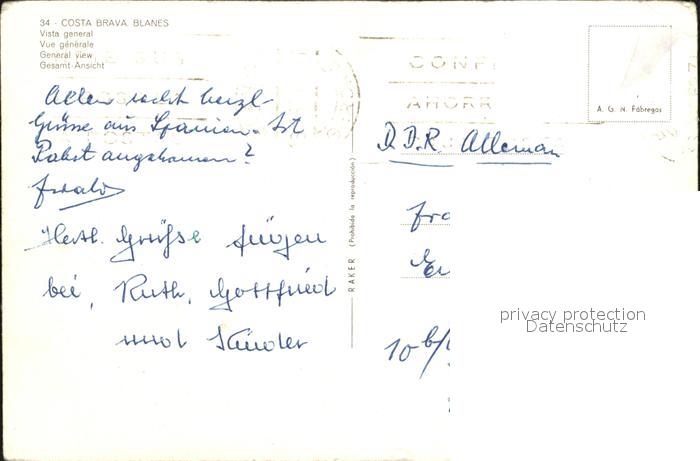 34 - COSTA BRAVA. BLANES
Vista general
Vue générale
General view
Gesamt-Ansicht
CONFI
AHORR
A. G. N. Fábregas
Allen recht herzl.
Grüsse aus Spanien. Ist
Paket angekommen?
Herzl. Grüße fügen
bei, Ruth, Gottfried
und Kinder
RAKER (Prohibida la reproducción)
D.D.R. Alleman
Fra
10 b/
privacy protection
Datenschutz